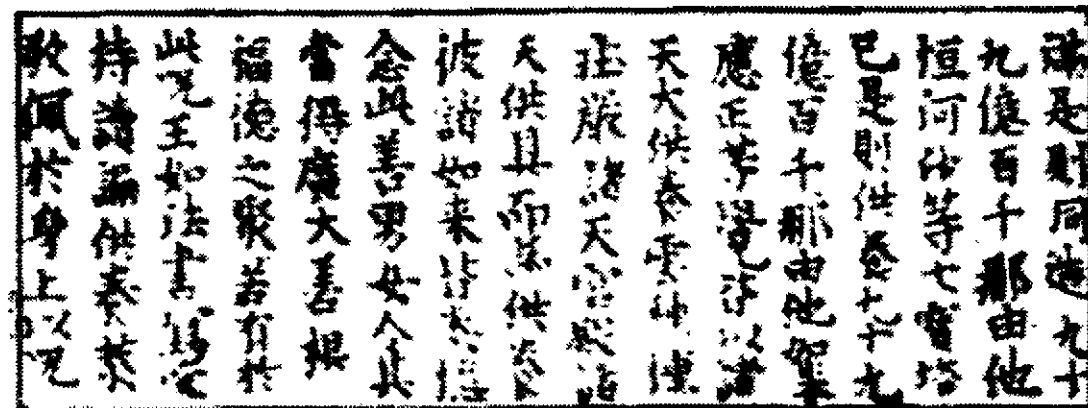 是則同造九十
九億百千那由他
恒河沙等七寶塔
已是則供養九十九
億百千那由他
應正等覺皆以諸
天大供養雲
莊嚴諸天宮殿諸
天供具而供
彼諸如来皆
念此善男女人其
當得廣大善根
福德之聚若有於
此咒王如法書寫
持讀誦供養恭
敬佩於身上以咒